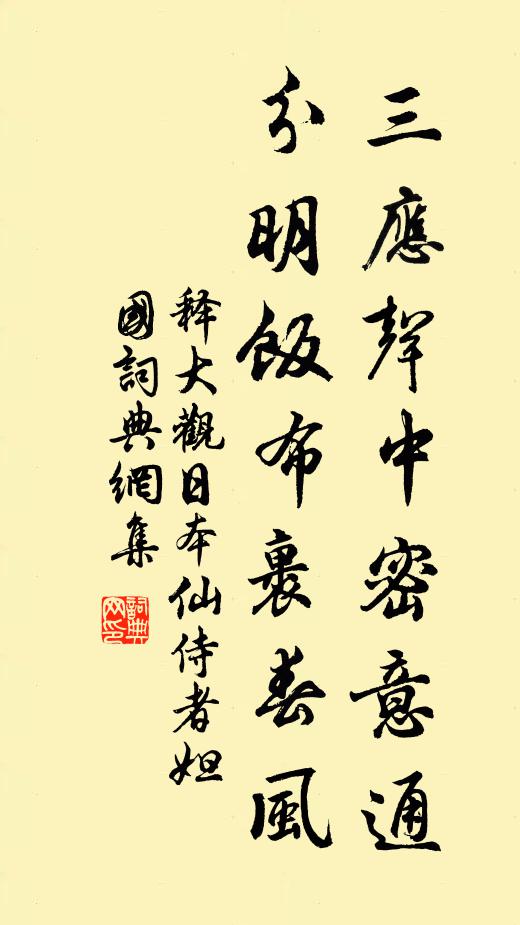 三應聲中密意通
分明飯布裹春風
释大觀日本仙侍者妲
國詞典網集
詞典
网印